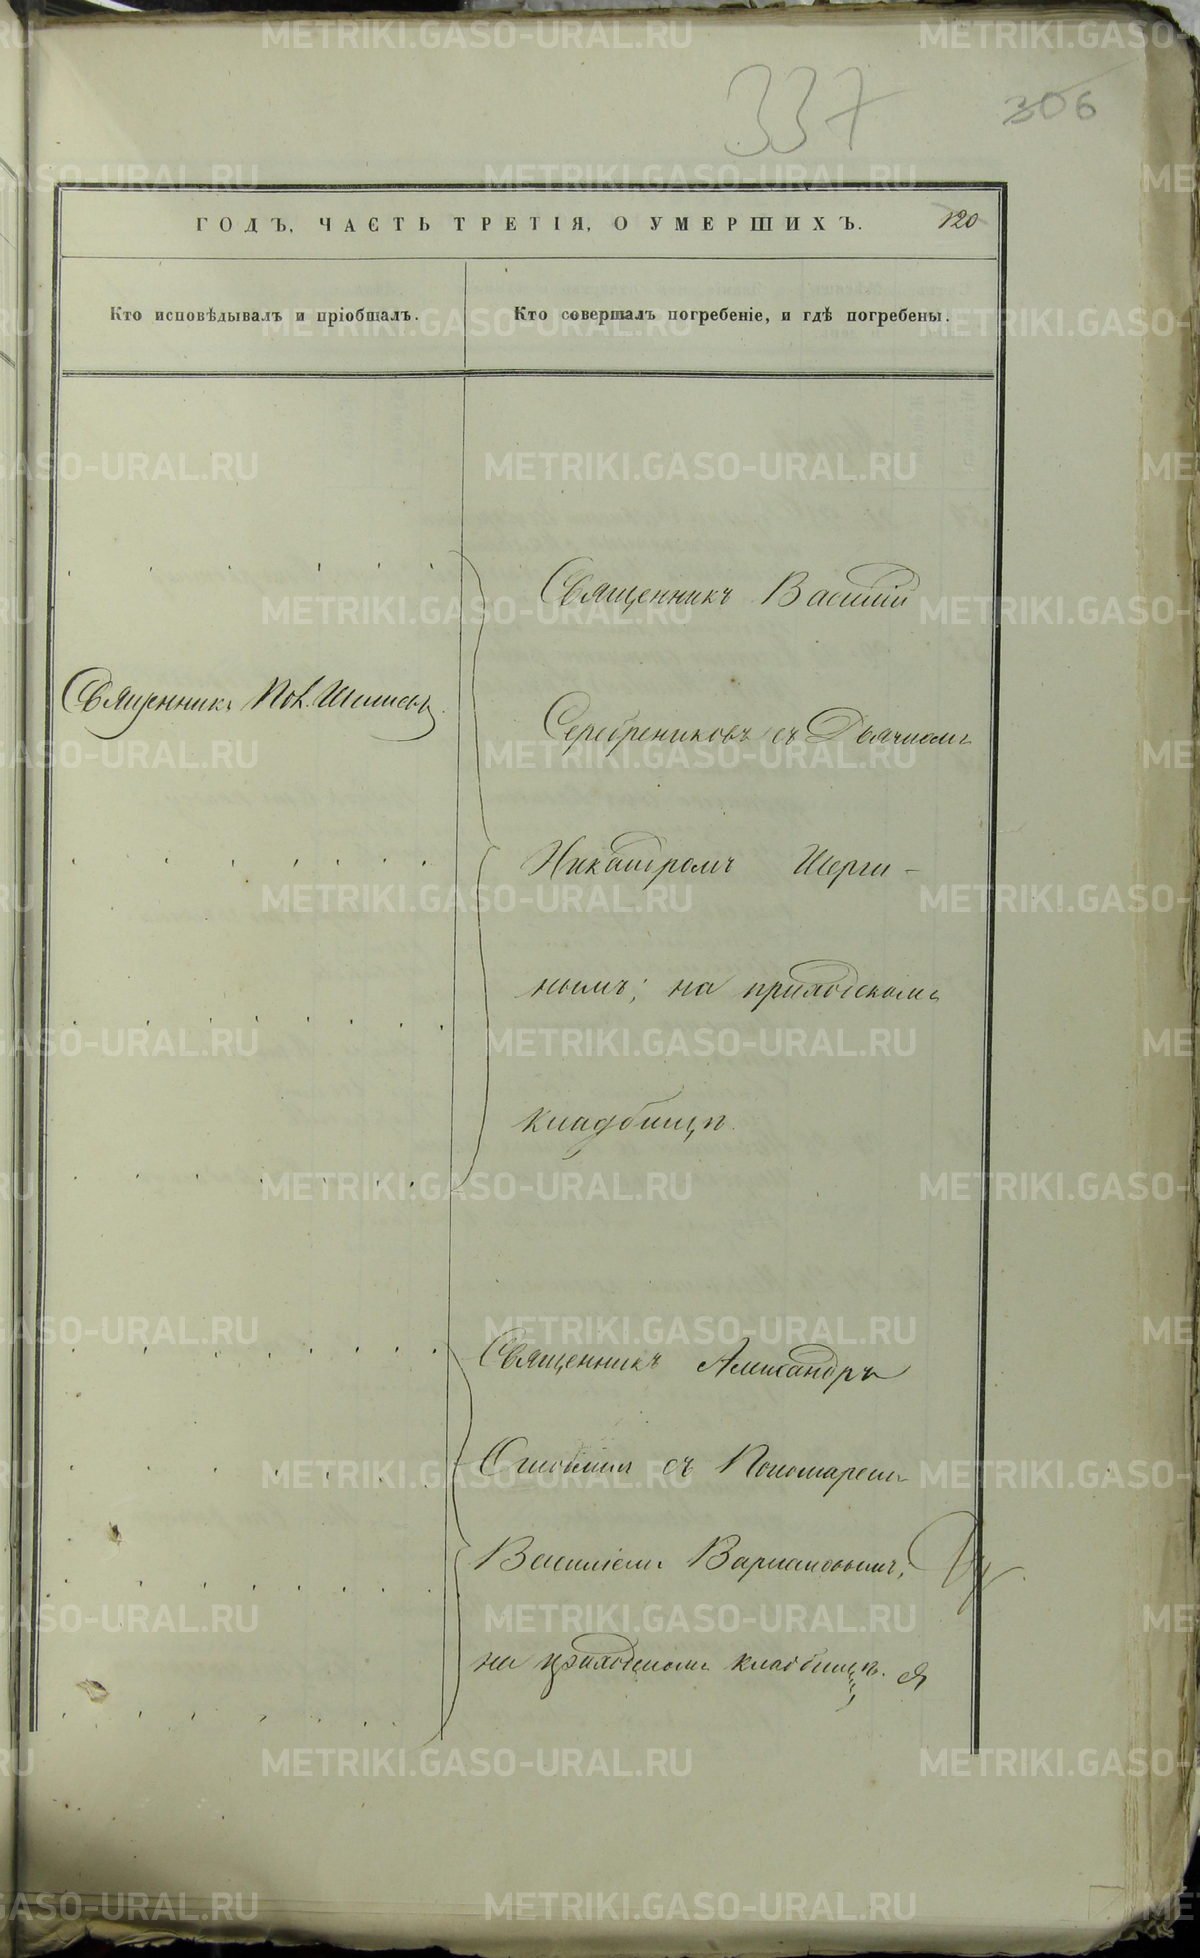 337
306
ГОДЪ, ЧАСТЬ ТРЕТІЯ, О УМЕРШИХЪ.
120
Кто исповѣдывалъ и пріобщалъ.
Кто совершалъ погребеніе, и гдѣ погребены.
Священникъ Василій
Священникъ
Серебрениковъ съ Дьячкомъ
Никандромъ Шерги-
нымъ; на приходскомъ
кладбищѣ.
Священникъ Александръ
съ Пономаремъ
Василіемъ Варлаковымъ,
на приходскомъ кладбищѣ.
METRIKI.GASO-URAL.RU